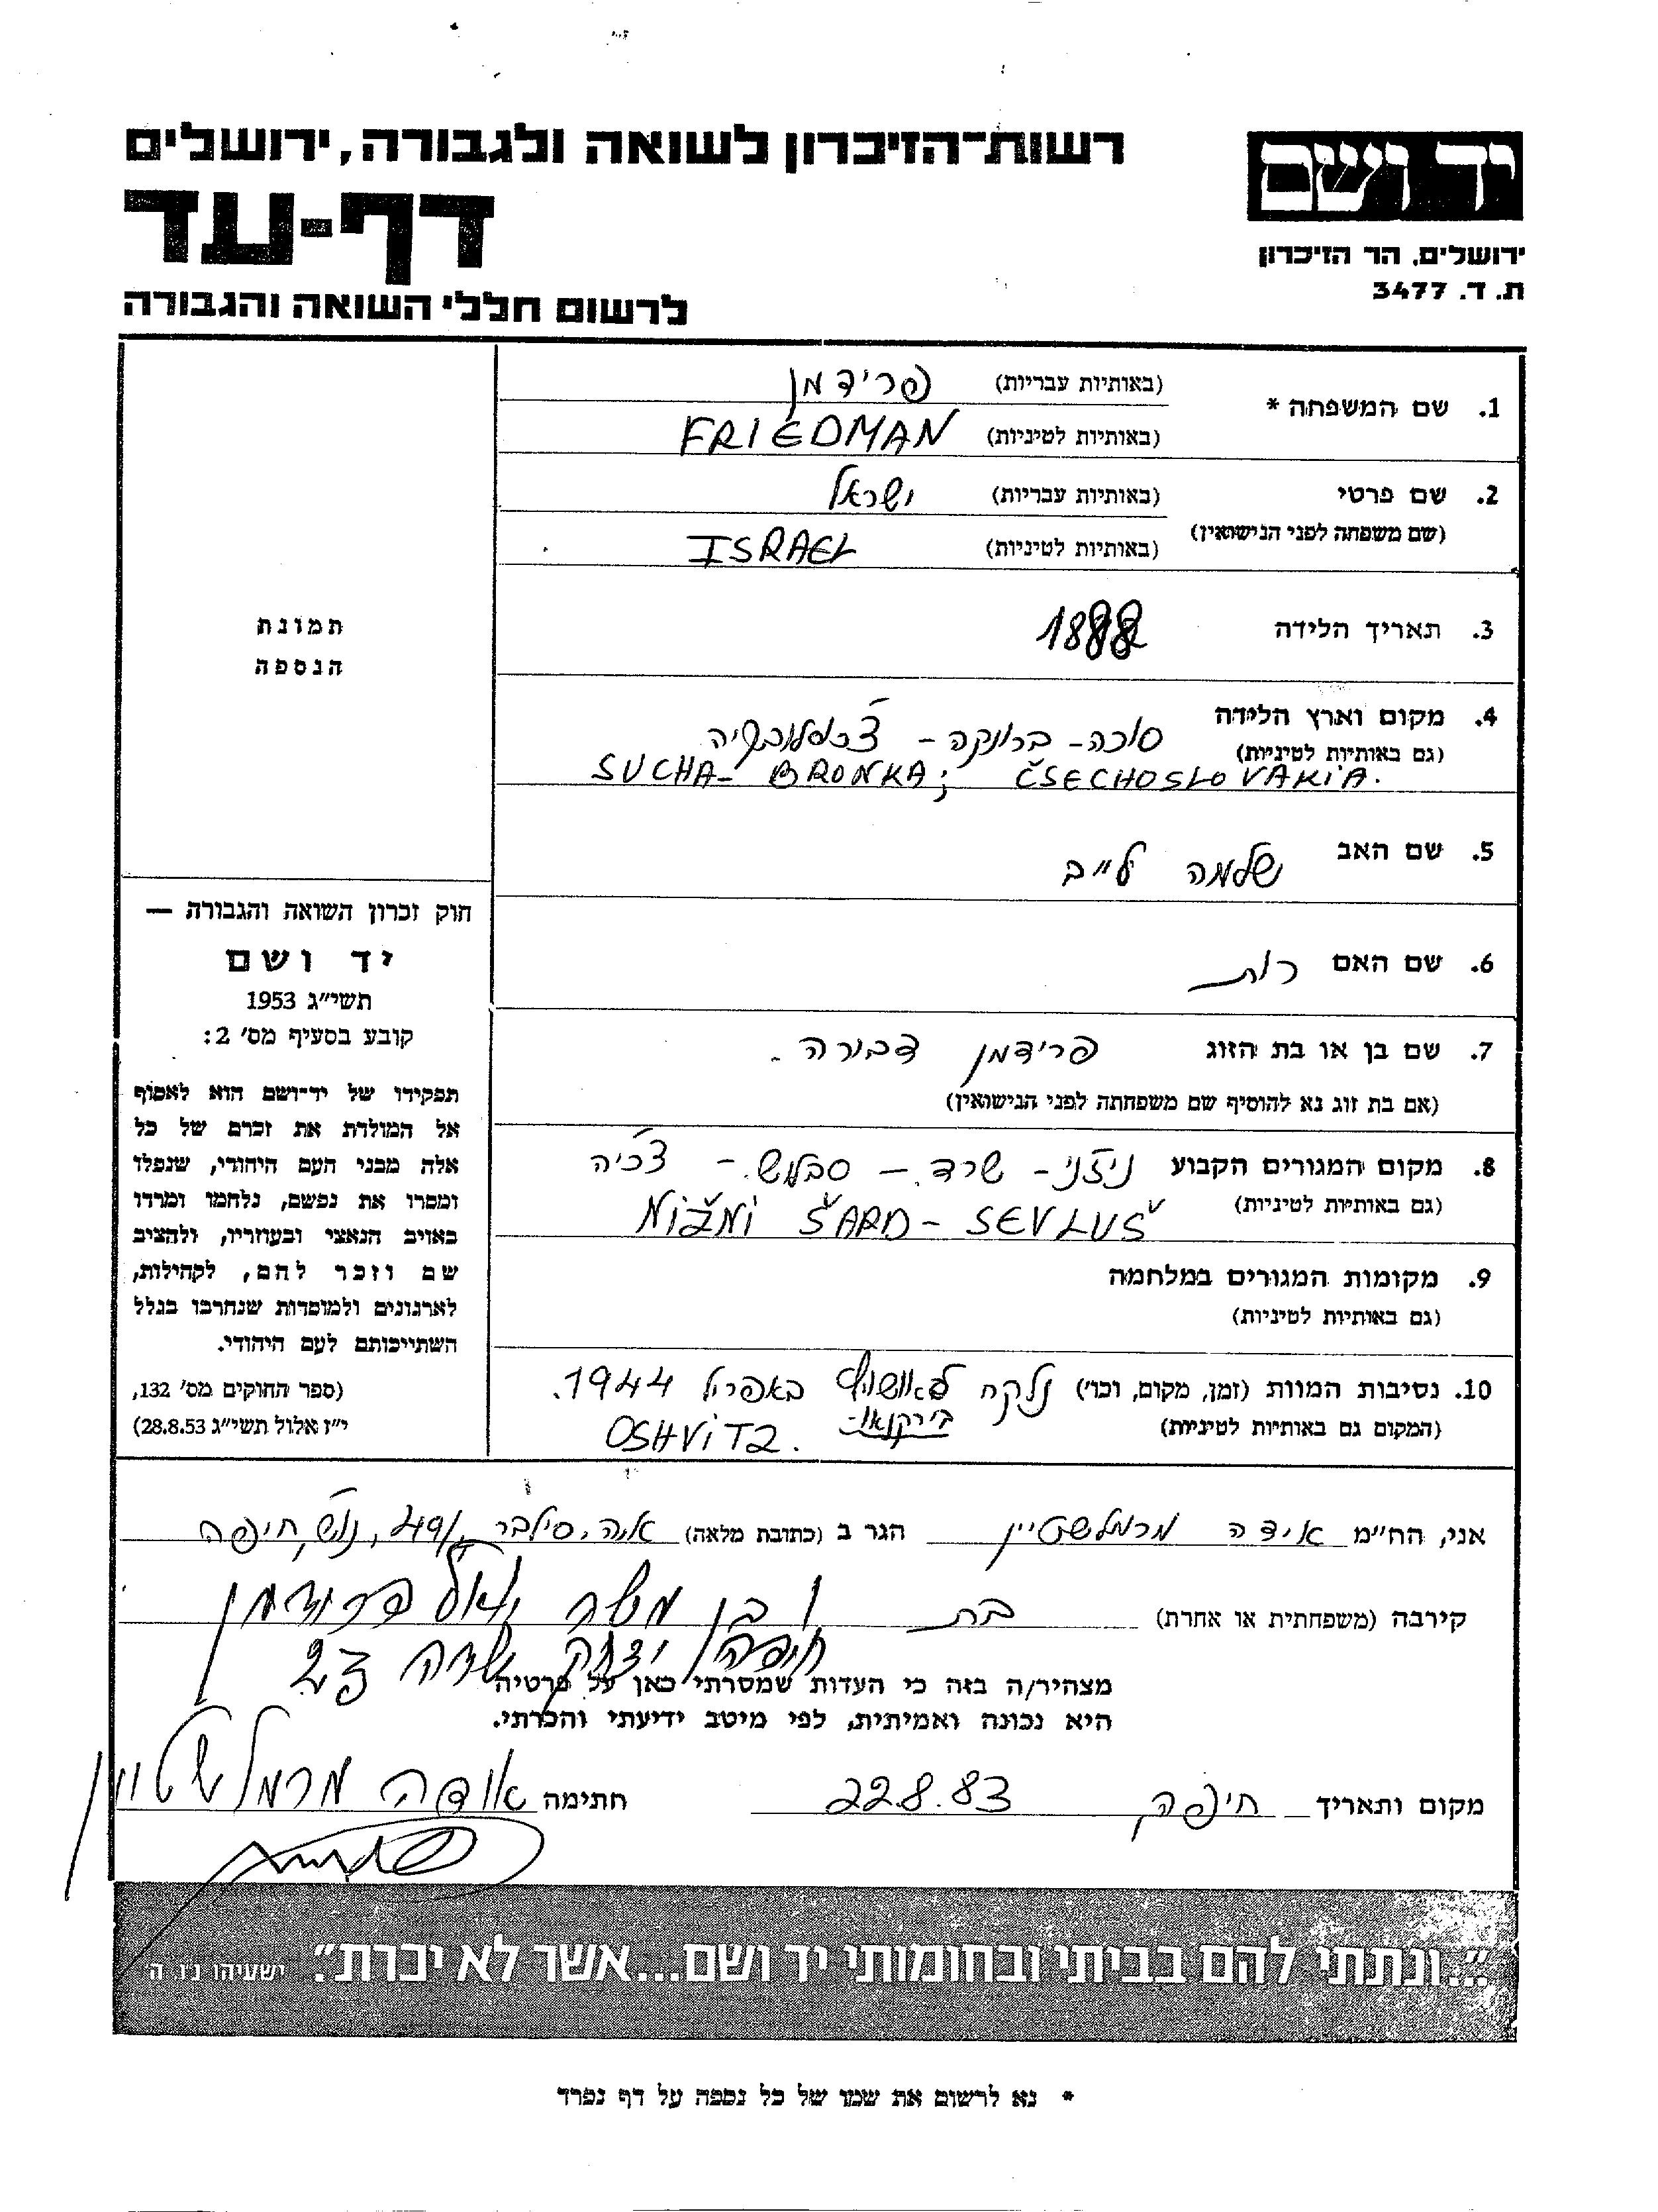 רשות-הזיכרון לשואה ולגבורה, ירושלים
דף-עד
לרשום חללי השואה והגבורה
יד ושם
ירושלים, הר הזיכרון
ת. ד. 3477
1. שם המשפחה * (באותיות עבריות) פרידמן
(באותיות לטיניות) FRIEDMAN
2. שם פרטי (באותיות עבריות) ישראל
(שם משפחה לפני הנישואין)
(באותיות לטיניות) ISRAEL
3. תאריך הלידה 1888
4. מקום וארץ הלידה סוכה - ברונקה - צ'כוסלובקיה
(גם באותיות לטיניות) SUCHA - BRONKA; ČSECHOSLOVAKIA.
5. שם האב שלמה לייב
6. שם האם רות
7. שם בן או בת הזוג פרידמן דבורה.
(אם בת זוג נא להוסיף שם משפחתה לפני הנישואין)
8. מקום המגורים הקבוע ניז'ני - שרד - סבלוש - צ'כיה
(גם באותיות לטיניות) NIŽNI ŠARD - SEVLUŠ
9. מקומות המגורים במלחמה
(גם באותיות לטיניות)
10. נסיבות המוות (זמן, מקום, וכו') נלקח לאושויץ באפריל 1944.
בירקנאו
(המקום גם באותיות לטיניות) OSHVITZ.
תמונת
הנספה
חוק זכרון השואה והגבורה —
יד ושם
תשי"ג 1953
קובע בסעיף מס' 2:
תפקידו של יד-ושם הוא לאסוף
אל המולדת את זכרם של כל
אלה מבני העם היהודי, שנפלו
ומסרו את נפשם, נלחמו ומרדו
באויב הנאצי ובעוזריו, ולהציב
שם וזכר להם, לקהילות,
לארגונים ולמוסדות שנחרבו בגלל
השתייכותם לעם היהודי.
(ספר החוקים מס' 132,
י"ז אלול תשי"ג 28.8.53)
אני, הח"מ אידה מרמלשטיין הגר ב (כתובת מלאה) אבא סילבר 49/, נוש, חיפה
קירבה (משפחתית או אחרת) בת / בן משה יואל פרידמן
חיפה יצחק שדה 23
מצהיר/ה בזה כי העדות שמסרתי כאן על פרטיה
היא נכונה ואמיתית, לפי מיטב ידיעתי והכרתי.
מקום ותאריך חיפה 22.8.83 חתימה אידה מרמלשטיין
"...ונתתי להם בביתי ובחומותי יד ושם...אשר לא יכרת". ישעיהו נ"ו, ה
* נא לרשום את שמו של כל נספה על דף נפרד